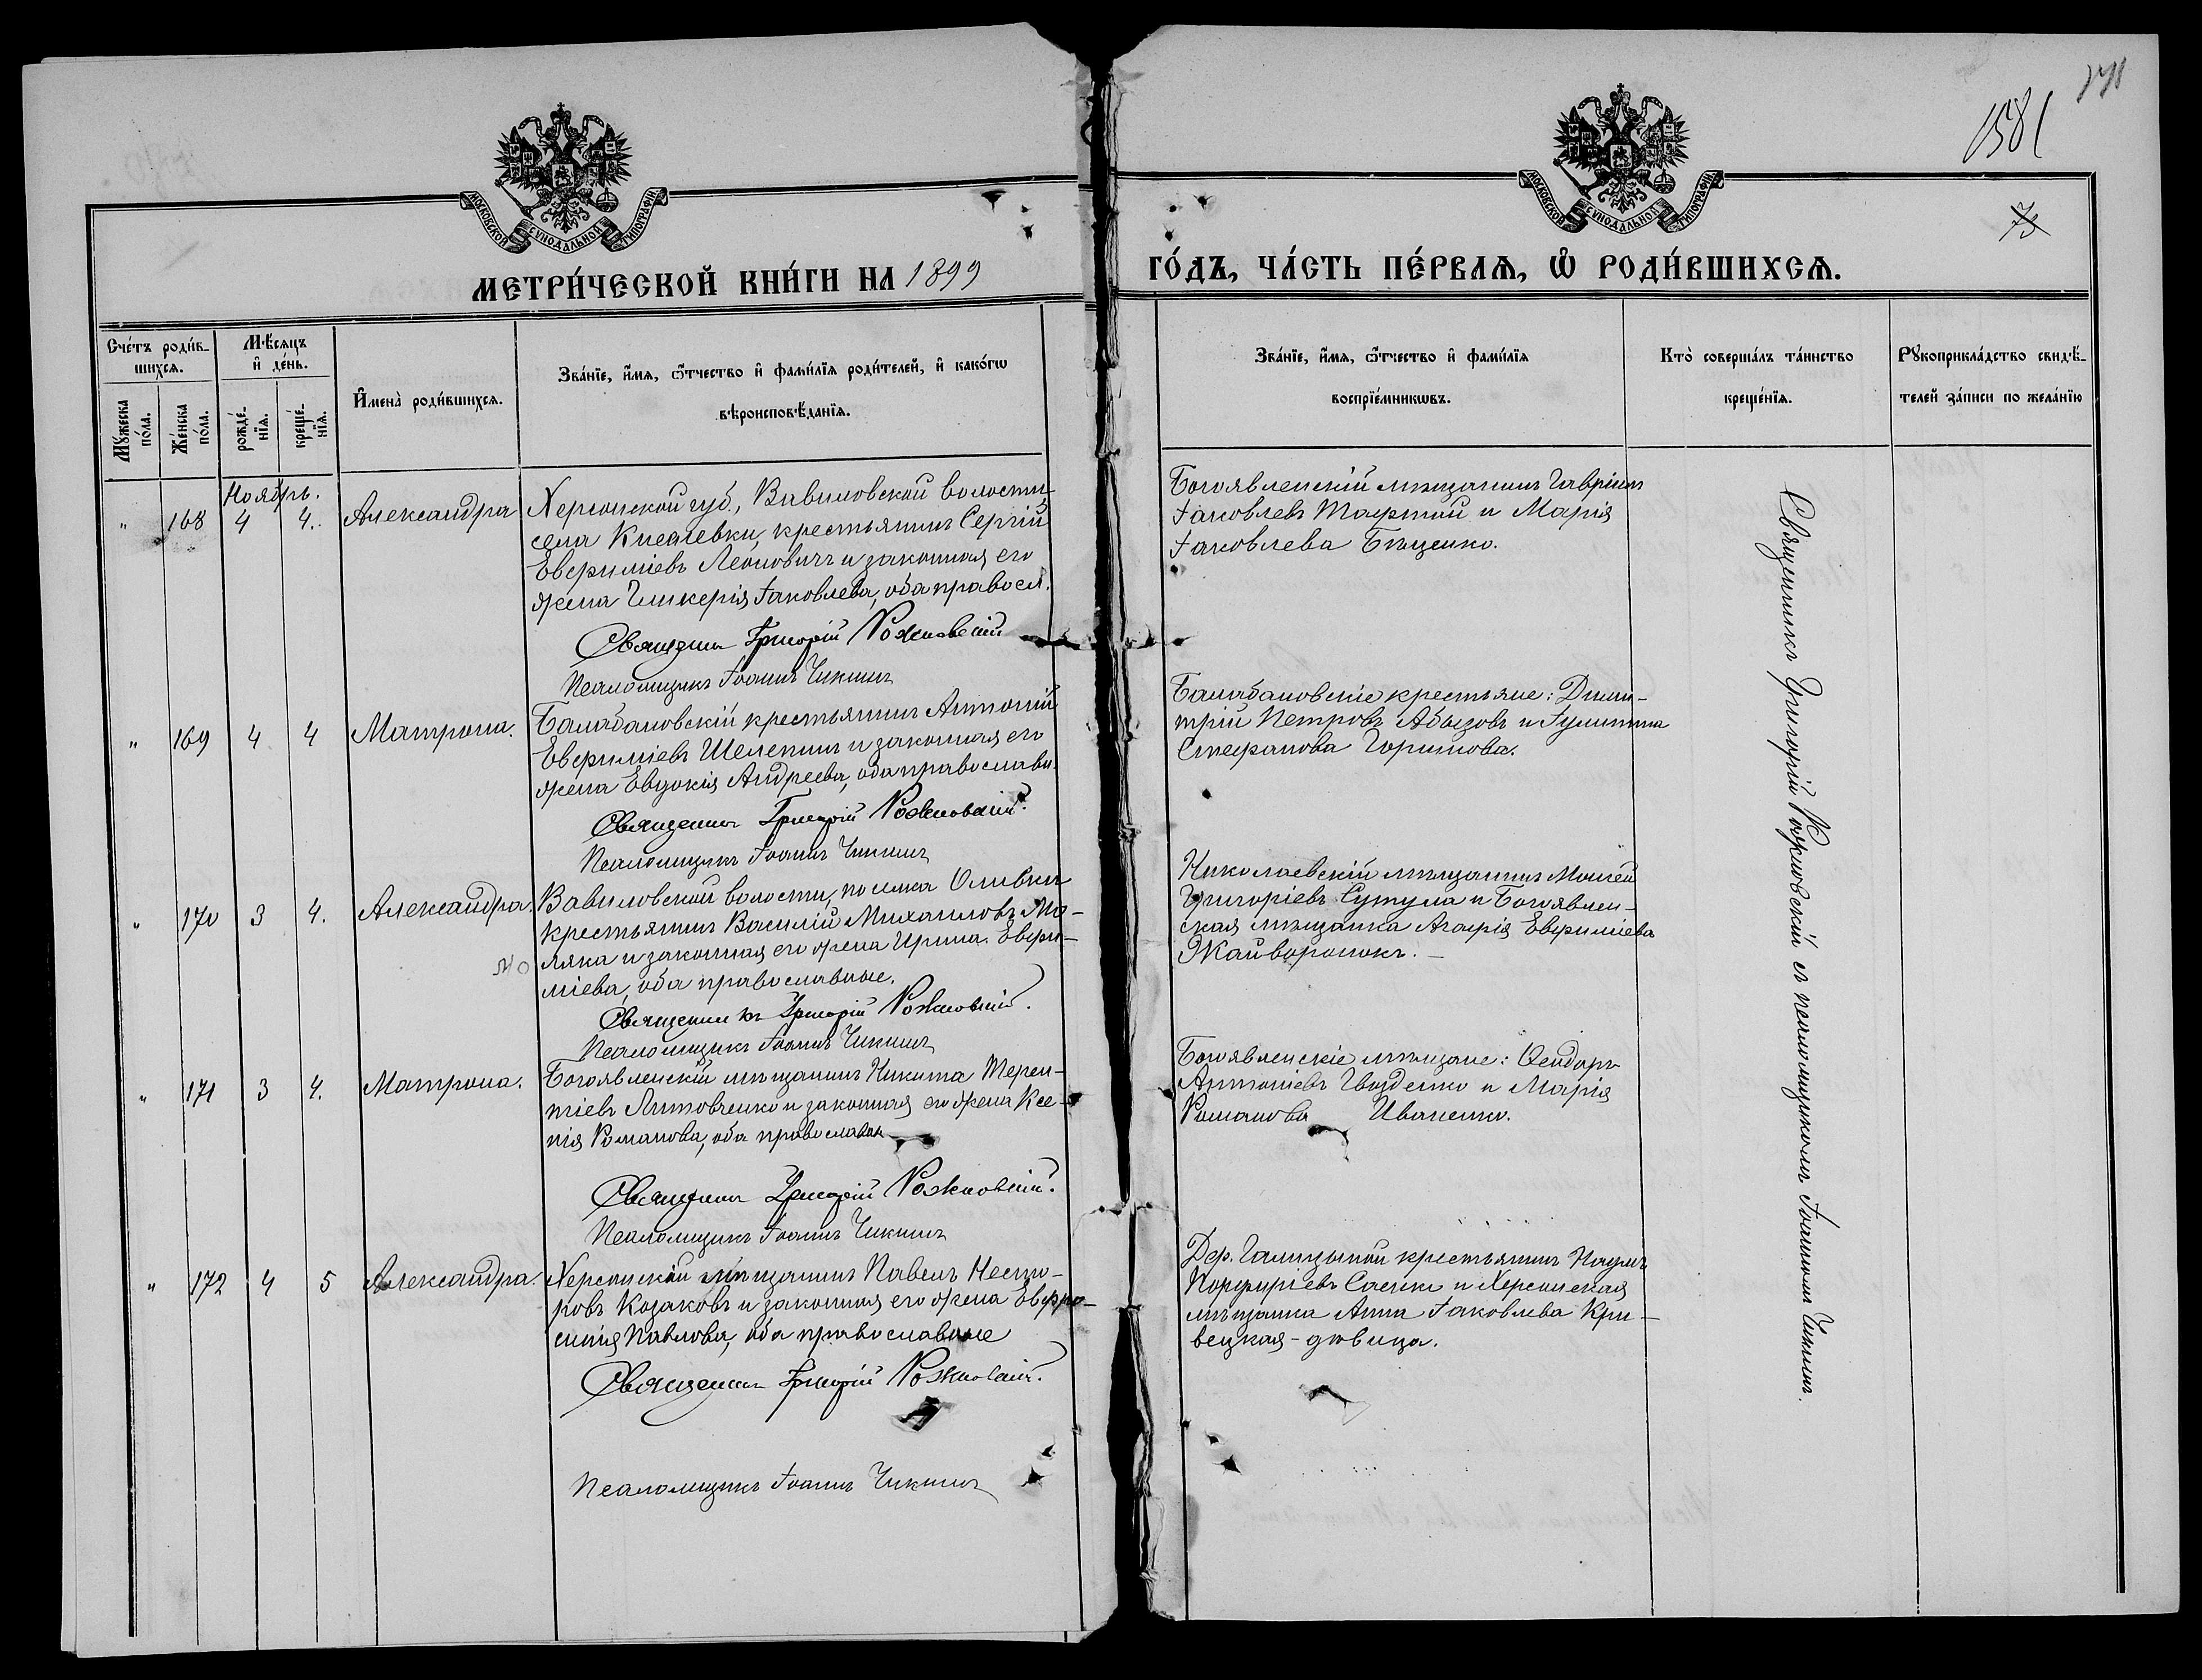 1581
МОСКОВСКОЙ СУНОДАЛЬНОЙ ТИПОГРАФІИ
МОСКОВСКОЙ СУНОДАЛЬНОЙ ТИПОГРАФІИ
75
МЕТРИ́ЧЕСКОЙ КНИ́ГИ НА 1899
ГО́ДЪ, ЧА́СТЬ ПЕ́РВАѦ, Ѡ҆ РОДИ́ВШИХСѦ.
Сче́тъ роди́в-
шихсѧ.
Мꙋ́жеска
по́ла.
Же́нска
по́ла.
Мѣ́сѧцъ
и҆ де́нь.
рожде́-
нїѧ.
креще́-
нїѧ.
И҆мена̀ роди́вшихсѧ.
Зва́нїе, и҆́мѧ, ѻ҆́тчество и҆ фами́лїѧ роди́телей, и҆ како́гѡ
вѣроисповѣ́данїѧ.
Зва́нїе, и҆́мѧ, ѻ҆́тчество и҆ фами́лїѧ
воспрїе́мникѡвъ.
Кто̀ соверша́лъ та́инство
креще́нїѧ.
Рꙋкоприкла́дство свидѣ́-
телей за́писи по жела́нїю
Ноябрь.
" 168 4 4. Александра
Херсонской губ., Вавиловской волости
села Киселевки, крестьянинъ Сергій
Евфиміевъ Леоновичъ и законная его
жена Гликерія Іаковлева, оба правосл.
Священн Григорій Рожновскій
Псаломщикъ Іоаннъ Чикинъ
Богоявленскій мѣщанинъ Гавріилъ
Іаковлевъ Толстой и Марія
Іаковлева Бѣценко.
" 169 4 4 Матрона.
Балабановскій крестьянинъ Антоній
Евфиміевъ Шелепинъ и законная его
жена Евдокія Андреева, оба православн.
Священникъ Григорій Рожновскій.
Псаломщикъ Іоаннъ Чикинъ
Балабановскіе крестьяне: Дими-
трій Петровъ Абызовъ и Іулитта
Стефанова Горитова.
" 170 3 4. Александра.
Вавиловской волости, поселка Оливки
крестьянинъ Василій Михаиловъ Мо-
ляка и законная его жена Ирина Евфи-
міева, оба православные.
Священникъ Григорій Рожновскій.
Псаломщикъ Іоаннъ Чикинъ
Николаевскій мѣщанинъ Моисей
Григоріевъ Сутула и Богоявлен-
ская мѣщанка Агафія Евфиміева
Жайворонокъ.
" 171 3 4. Матрона.
Богоявленскій мѣщанинъ Никита Терен-
тіевъ Литовченко и законная его жена Ксе-
нія Романова, оба православн
Священникъ Григорій Рожновскій.
Псаломщикъ Іоаннъ Чикинъ
Богоявленскіе мѣщане: Ѳеодоръ
Антоніевъ Гвозденко и Марія
Романова Иваненко.
" 172 4 5 Александра.
Херсонскій мѣщанинъ Павелъ Несто-
ровъ Козаковъ и законная его жена Евфро-
синія Павлова, оба православные
Священникъ Григорій Рожновскій.
Псаломщикъ Іоаннъ Чикинъ
Дер. Галицыной крестьянинъ Наумъ
Порфиріевъ Саенко и Херсонская
мѣщанка Анна Іаковлева Кри-
вецкая - дѣвица.
Священникъ Григорій Рожновскій съ псаломщикомъ Іоанномъ Чикинъ.